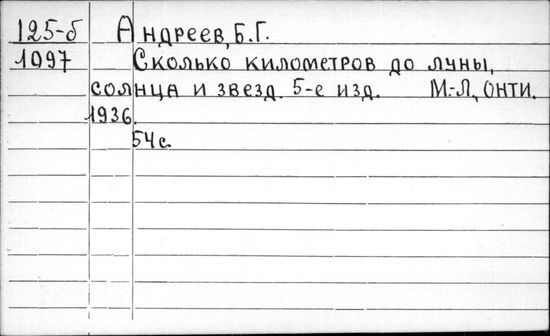 125-б Андреев, Б.Г.
1097 Сколько километров до луны,
солнца и звезд. 5-е изд. М.-Л., ОНТИ.
1936.
54с.